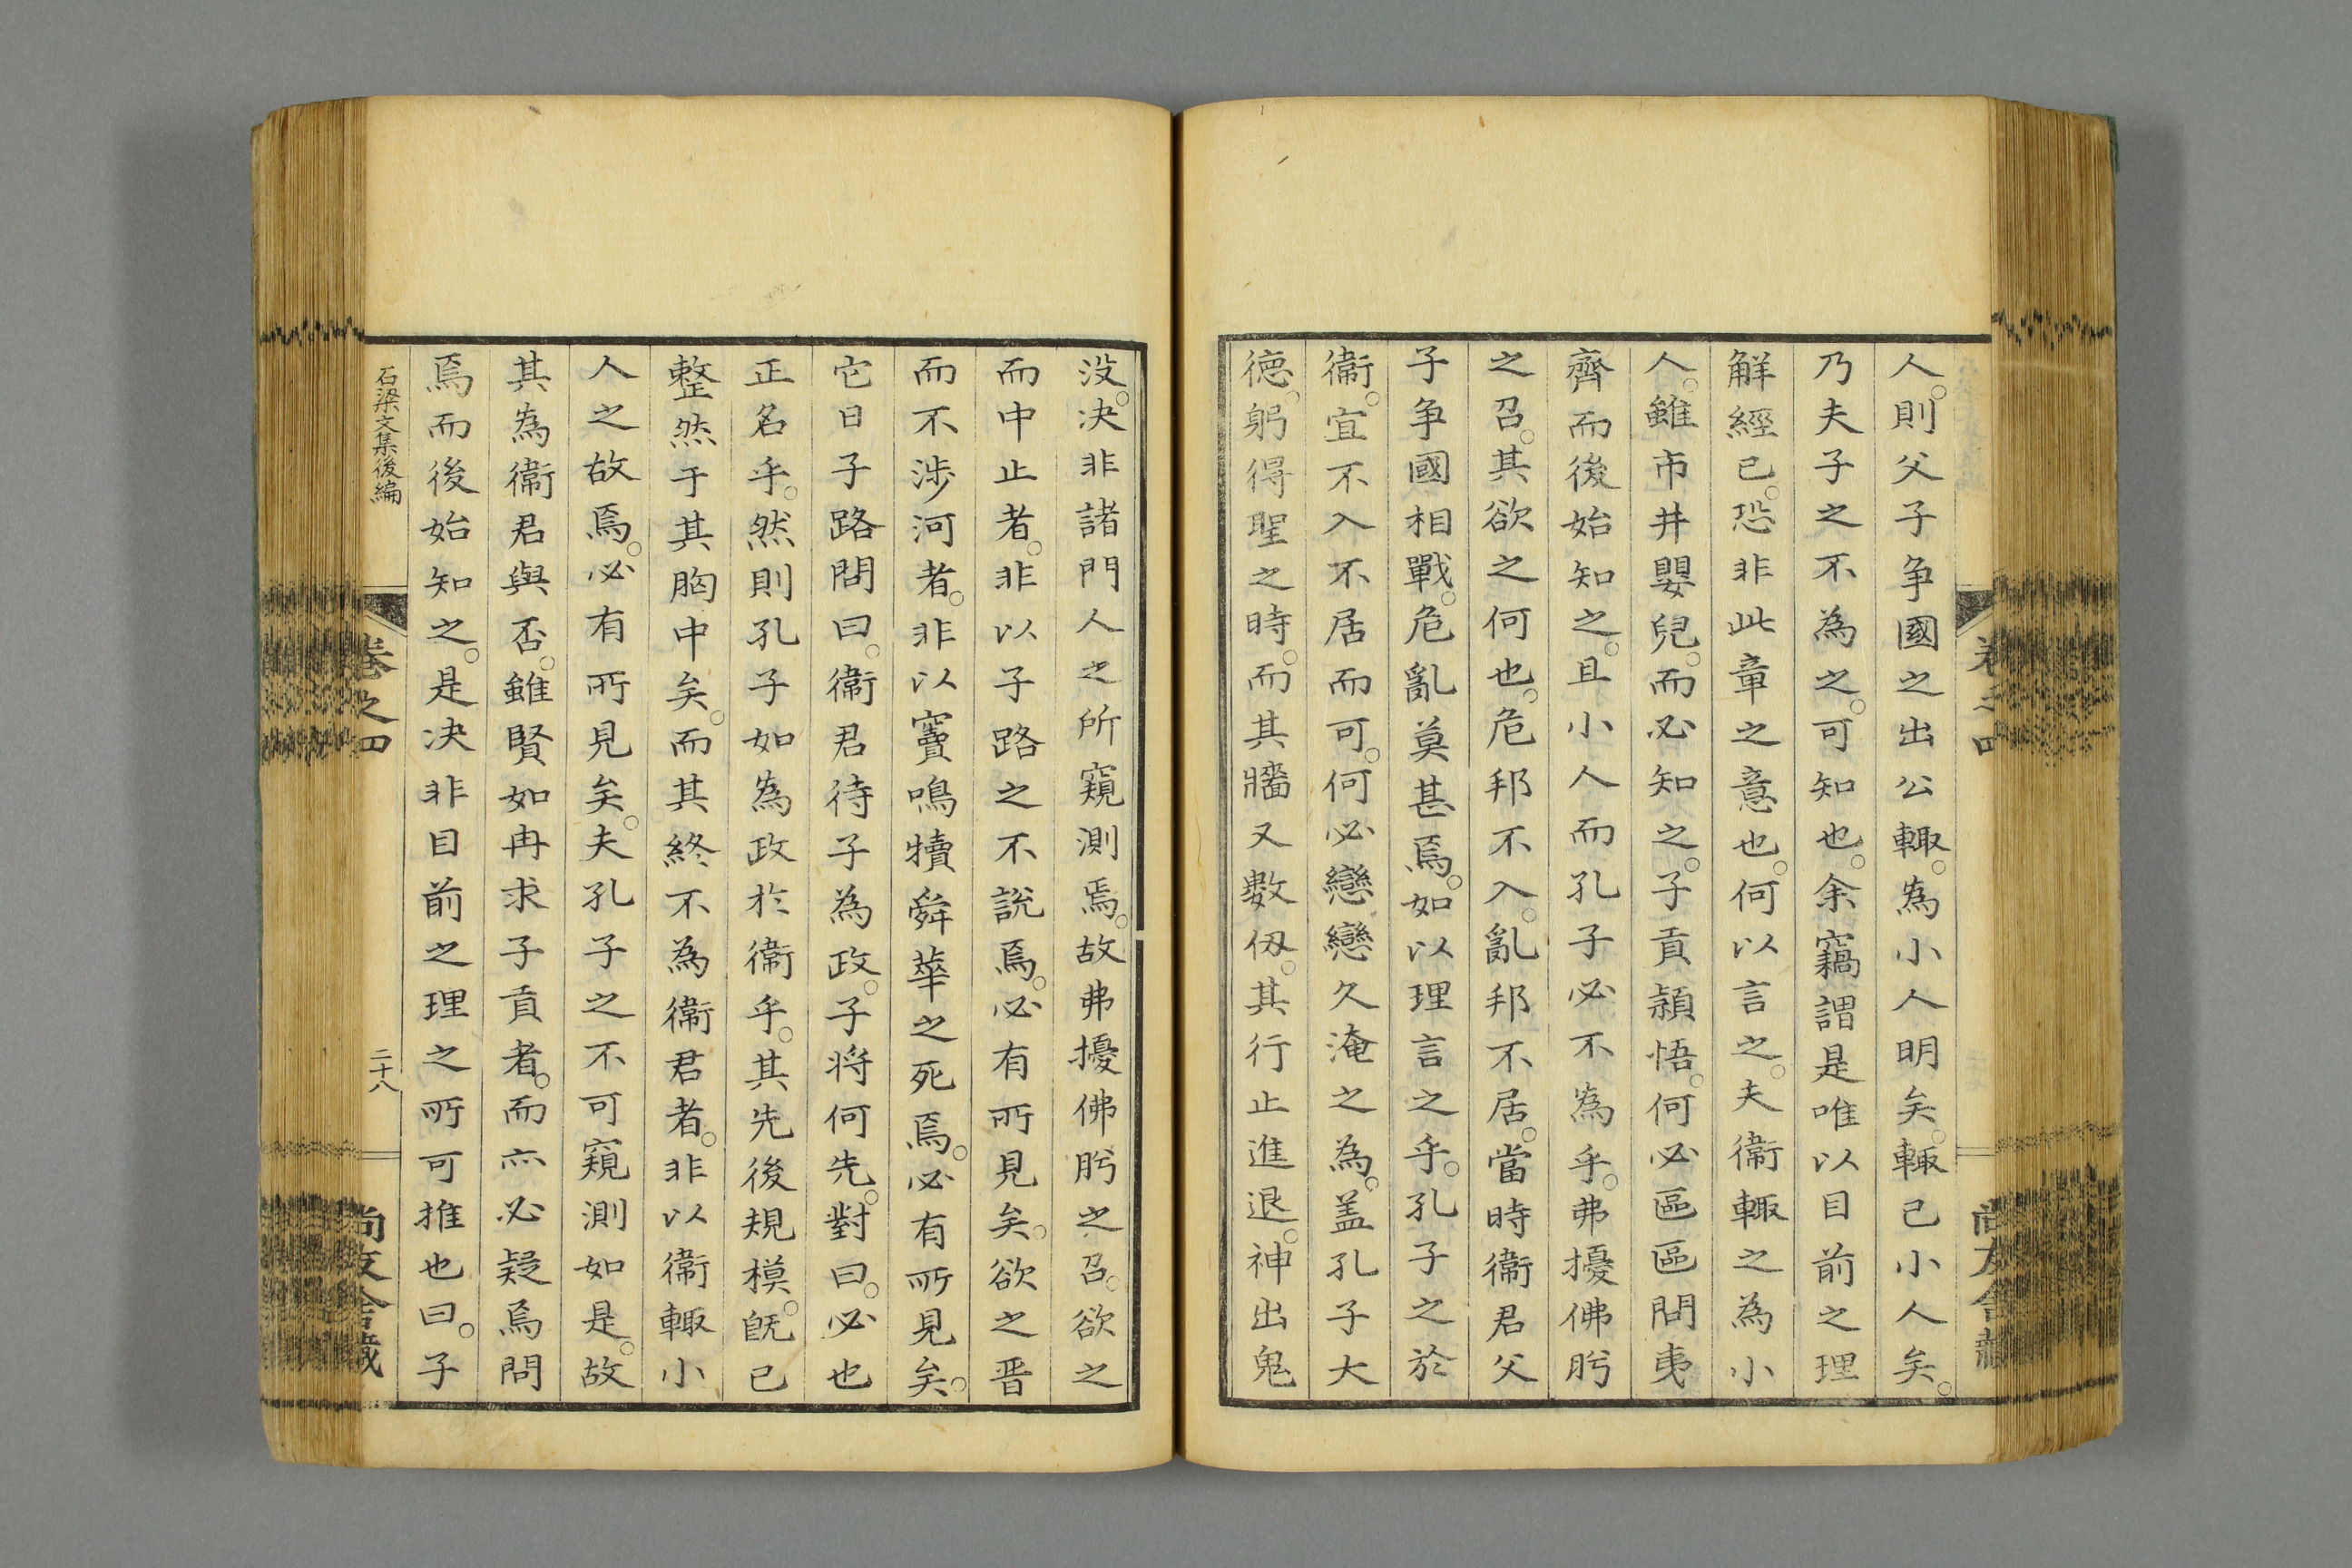 人。則父子争國之出公輙。為小人明矣。輙已小人矣。
乃夫子之不為之。可知也。余竊謂是唯以目前之理
解經已。恐非此章之意也。何以言之。夫衞輙之為小
人。雖市井嬰兒。而必知之。子貢穎悟。何必區區問夷
齊而後始知之。且小人而孔子必不為乎。弗擾佛肸
之召。其欲之何也。危邦不入。亂邦不居。當時衞君父
子争國相戰。危亂莫甚焉。如以理言之乎。孔子之於
衞。宜不入不居而可。何必戀戀久淹之為。盖孔子大
德。躬得聖之時。而其牆又數仭。其行止進退。神出鬼
卷之四
没。决非諸門人之所窺測焉。故弗擾佛肸之召。欲之
而中止者。非以子路之不說焉。必有所見矣。欲之晋
而不涉河者。非以竇鳴犢舜華之死焉。必有所見矣。
它日子路問曰。衞君待子為政。子将何先。對曰。必也
正名乎。然則孔子如為政於衞乎。其先後規模。旣已
整然于其胸中矣。而其終不為衞君者。非以衞輙小
人之故焉。必有所見矣。夫孔子之不可窺測如是。故
其為衞君與否。雖賢如冉求子貢者。而亦必疑焉問
焉而後始知之。是决非目前之理之所可推也。曰。子
石梁文集後編
卷之四
二十八